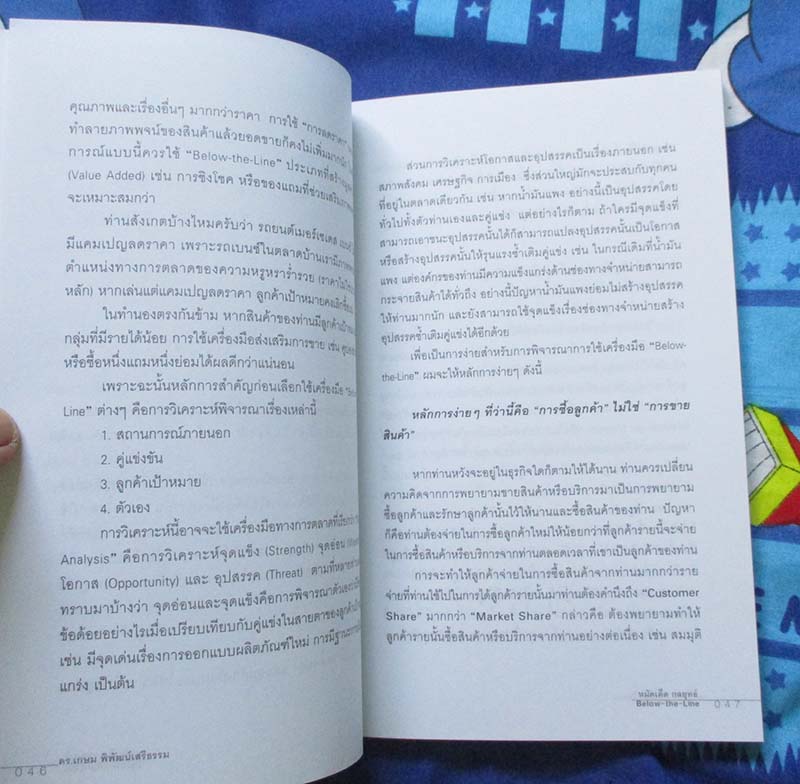 คุณภาพและเรื่องอื่นๆ มากกว่าราคา การใช้ "การลดราคา"
ทำลายภาพพจน์ของสินค้าแล้วยอดขายก็คงไม่เพิ่มมากนัก
การณ์แบบนี้ควรใช้ "Below-the-Line" ประเภทที่สร้าง
(Value Added) เช่น การชิงโชค หรือของแถมที่ช่วยเสริม
จะเหมาะสมกว่า
ท่านสังเกตบ้างไหมครับว่า รถยนต์เมอร์เซเดส
มีแคมเปญลดราคา เพราะรถเบนซ์ในตลาดบ้านเรามี
ตำแหน่งทางการตลาดของความหรูหราร่ำรวย
หลัก) หากเล่นแต่แคมเปญลดราคา ลูกค้าเป้าหมายคงเลิก
ในทำนองตรงกันข้าม หากสินค้าของท่านมีลูกค้า
กลุ่มที่มีรายได้น้อย การใช้เครื่องมือส่งเสริมการขาย เช่น
หรือซื้อหนึ่งแถมหนึ่งย่อมได้ผลดีกว่าแน่นอน
เพราะฉะนั้นหลักการสำคัญก่อนเลือกใช้เครื่องมือ
Line" ต่างๆ คือการวิเคราะห์พิจารณาเรื่องเหล่านี้
1. สถานการณ์ภายนอก
2. คู่แข่งขัน
3. ลูกค้าเป้าหมาย
4. ตัวเอง
การวิเคราะห์นี้อาจจะใช้เครื่องมือทางการตลาดที่เรียกว่า
Analysis" คือการวิเคราะห์จุดแข็ง (Strength) จุดอ่อน
โอกาส (Opportunity) และ อุปสรรค (Threat) ตามที่หลาย
ทราบมาบ้างว่า จุดอ่อนและจุดแข็งคือการพิจารณาตัวเอง
ข้อด้อยอย่างไรเมื่อเปรียบเทียบกับคู่แข่งในสายตาของลูกค้า
เช่น มีจุดเด่นเรื่องการออกแบบผลิตภัณฑ์ใหม่ การมีฐาน
แกร่ง เป็นต้น
046
ดร.เกษม พิพัฒน์เสรีธรรม
ส่วนการวิเคราะห์โอกาสและอุปสรรคเป็นเรื่องภายนอก เช่น
สภาพสังคม เศรษฐกิจ การเมือง ซึ่งส่วนใหญ่มักจะประสบกับทุกคน
ที่อยู่ในตลาดเดียวกัน เช่น หากน้ำมันแพง อย่างนี้เป็นอุปสรรคโดย
ทั่วไปทั้งตัวท่านเองและคู่แข่ง แต่อย่างไรก็ตาม ถ้าใครมีจุดแข็งที่
สามารถเอาชนะอุปสรรคนั้นได้ก็สามารถแปลงอุปสรรคนั้นเป็นโอกาส
หรือสร้างอุปสรรคนั้นให้รุนแรงซ้ำเติมคู่แข่ง เช่น ในกรณีเดิมที่น้ำมัน
แพง แต่องค์กรของท่านมีความแข็งแกร่งด้านช่องทางจำหน่ายสามารถ
กระจายสินค้าได้ทั่วถึง อย่างนี้ปัญหาน้ำมันแพงย่อมไม่สร้างอุปสรรค
ให้ท่านมากนัก และยังสามารถใช้จุดแข็งเรื่องช่องทางจำหน่ายสร้าง
อุปสรรคซ้ำเติมคู่แข่งได้อีกด้วย
เพื่อเป็นการง่ายสำหรับการพิจารณาการใช้เครื่องมือ "Below-
the-Line" ผมจะให้หลักการง่ายๆ ดังนี้
หลักการง่ายๆ ที่ว่านี้คือ "การซื้อลูกค้า" ไม่ใช่ "การขาย
สินค้า"
หากท่านหวังจะอยู่ในธุรกิจใดก็ตามให้ได้นาน ท่านควรเปลี่ยน
ความคิดจากการพยายามขายสินค้าหรือบริการมาเป็นการพยายาม
ซื้อลูกค้าและรักษาลูกค้านั้นไว้ให้นานและซื้อสินค้าของท่าน ปัญหา
ก็คือท่านต้องจ่ายในการซื้อลูกค้าใหม่ให้น้อยกว่าที่ลูกค้ารายนี้จะจ่าย
ในการซื้อสินค้าหรือบริการจากท่านตลอดเวลาที่เขาเป็นลูกค้าของท่าน
การจะทำให้ลูกค้าจ่ายในการซื้อสินค้าจากท่านมากกว่าราย
จ่ายที่ท่านใช้ไปในการได้ลูกค้ารายนั้นมาท่านต้องคำนึงถึง "Customer
Share" มากกว่า "Market Share" กล่าวคือ ต้องพยายามทำให้
ลูกค้ารายนั้นซื้อสินค้าหรือบริการจากท่านอย่างต่อเนื่อง เช่น สมมุติ
หมัดเด็ด กลยุทธ์
Below-the-Line 047